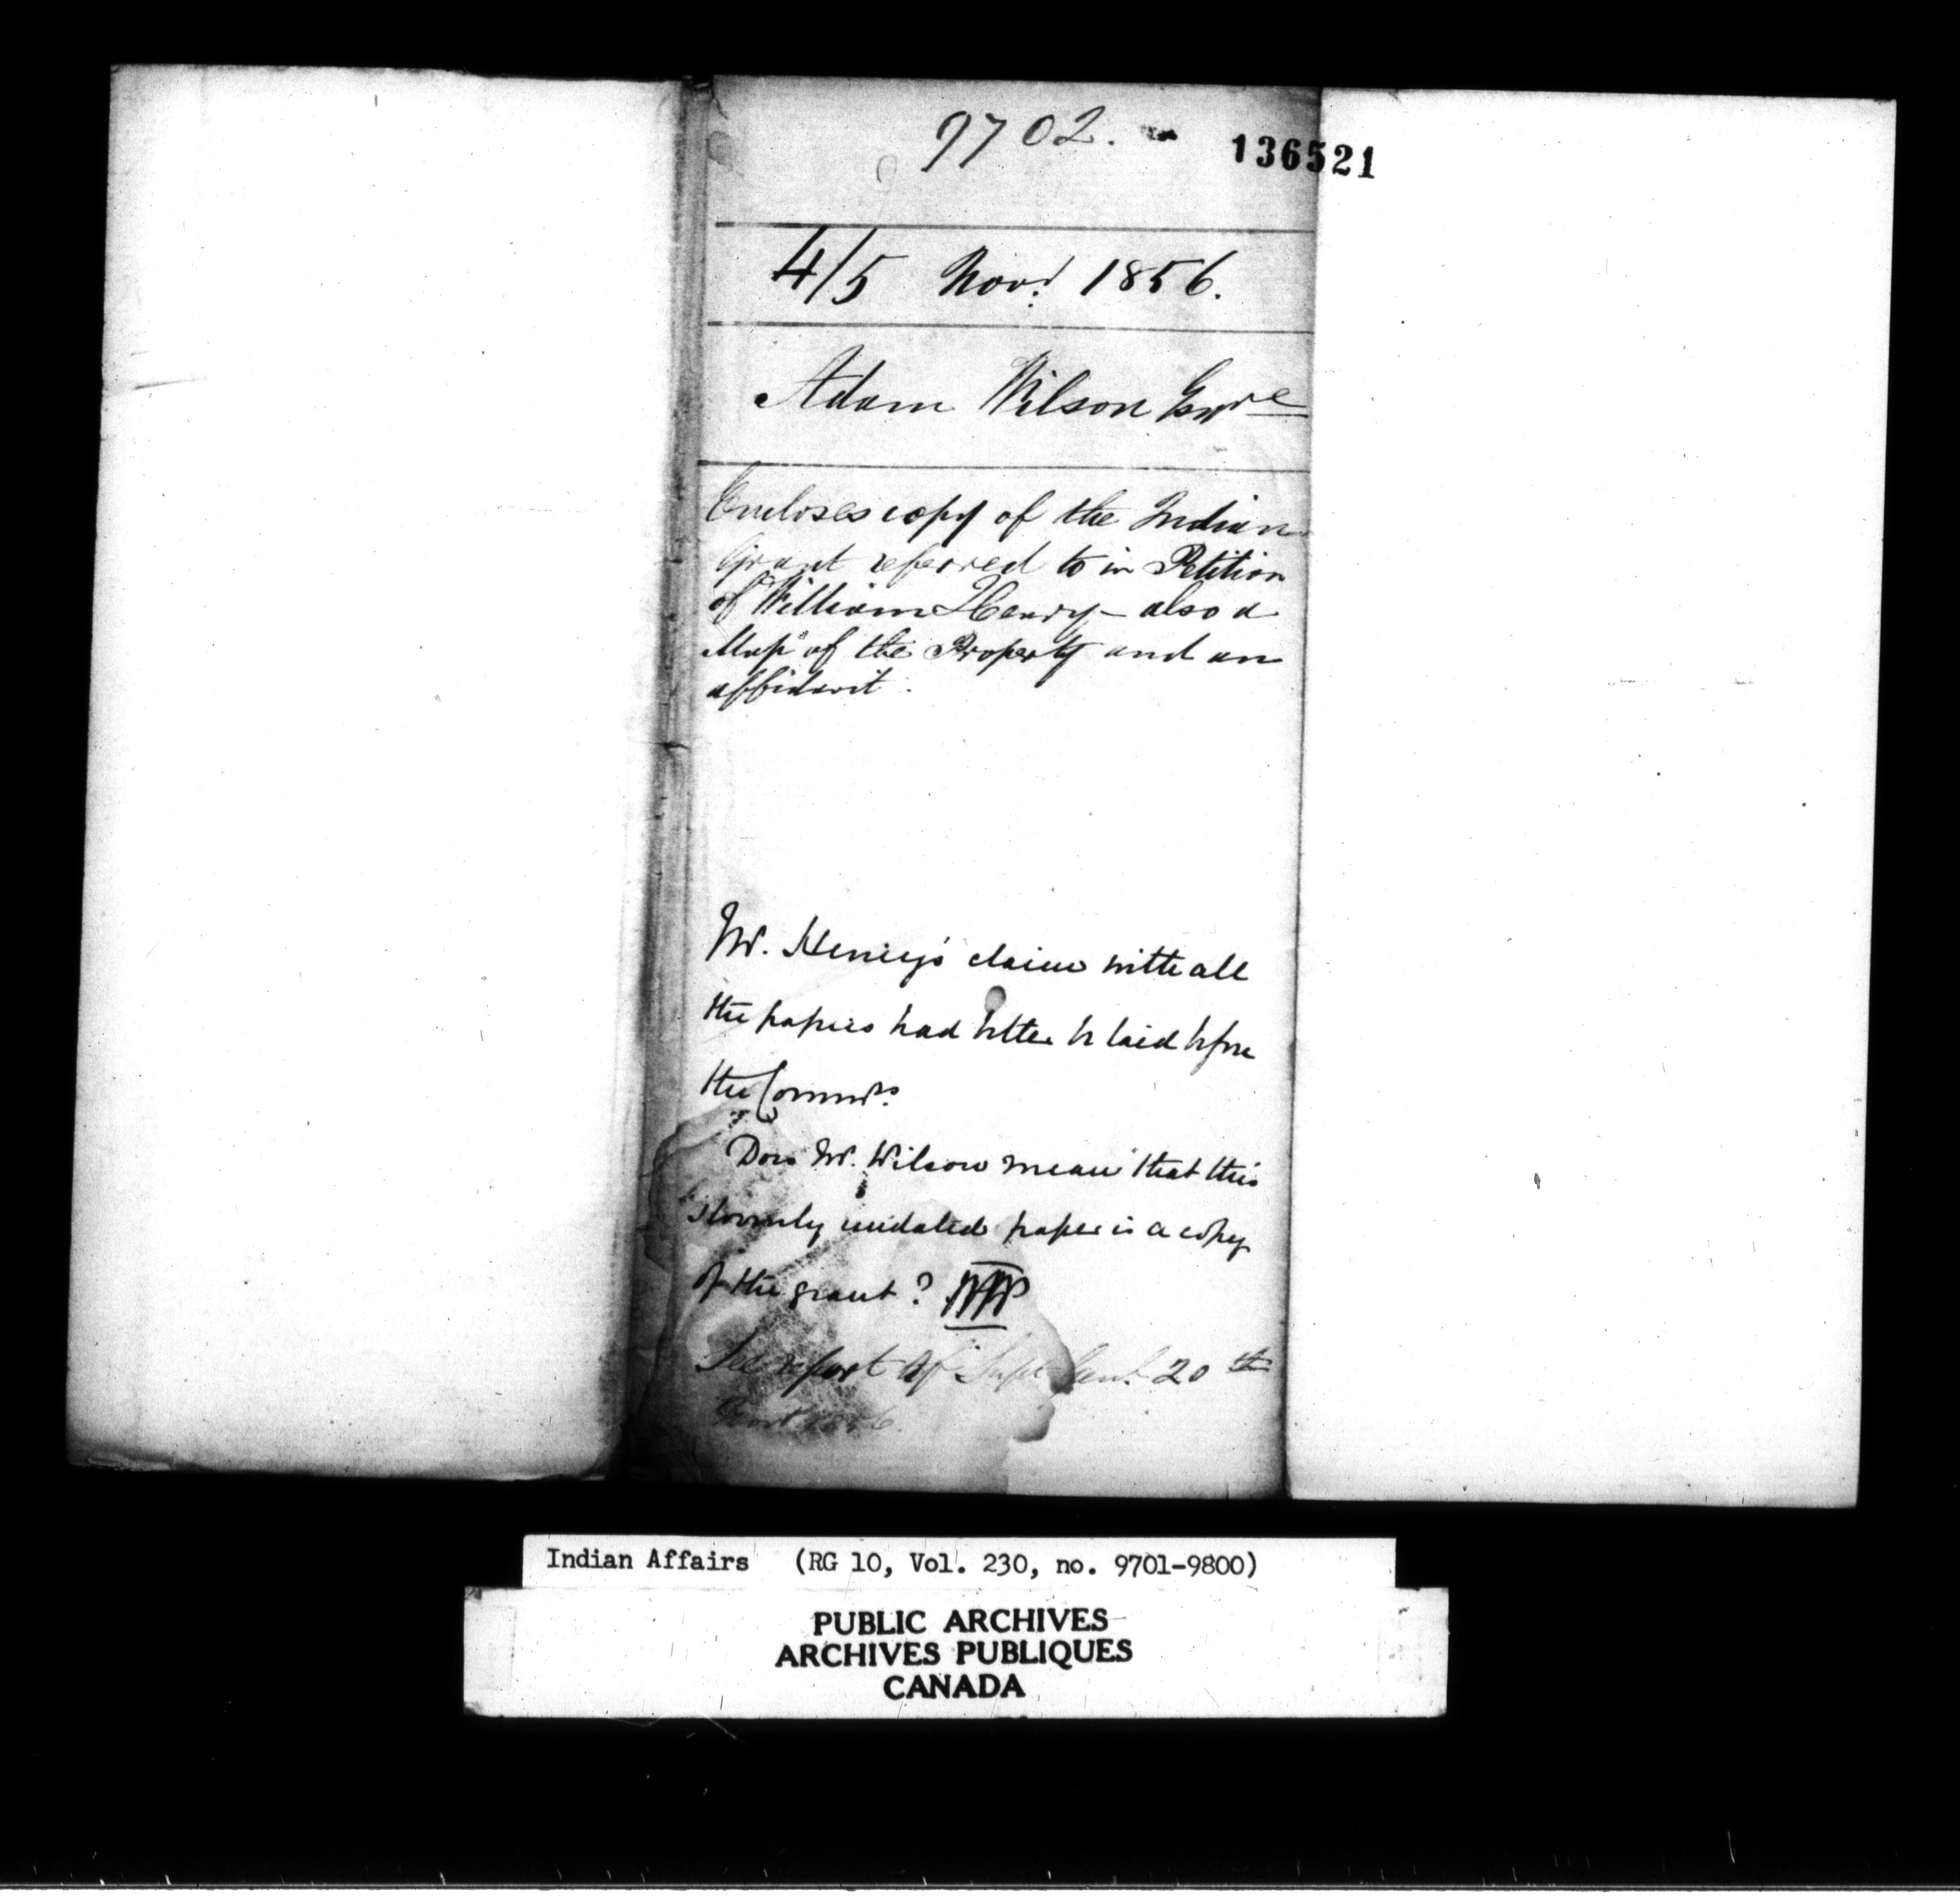 9702.
136521
4/5 Novr. 1856.
Adam Wilson Esqre
Encloses copy of the Indian
Grant referred to in Petition
of William Henry - also a
Map of the Property and an
affidavit.
Mr. Henry's claim with all
the papers had better be laid before
the Commrs.
Does Mr. Wilson mean that this
slovenly undated paper is a copy
of the grant?
See report of Supt 20th
Indian Affairs (RG 10, Vol. 230, no. 9701-9800)
PUBLIC ARCHIVES
ARCHIVES PUBLIQUES
CANADA